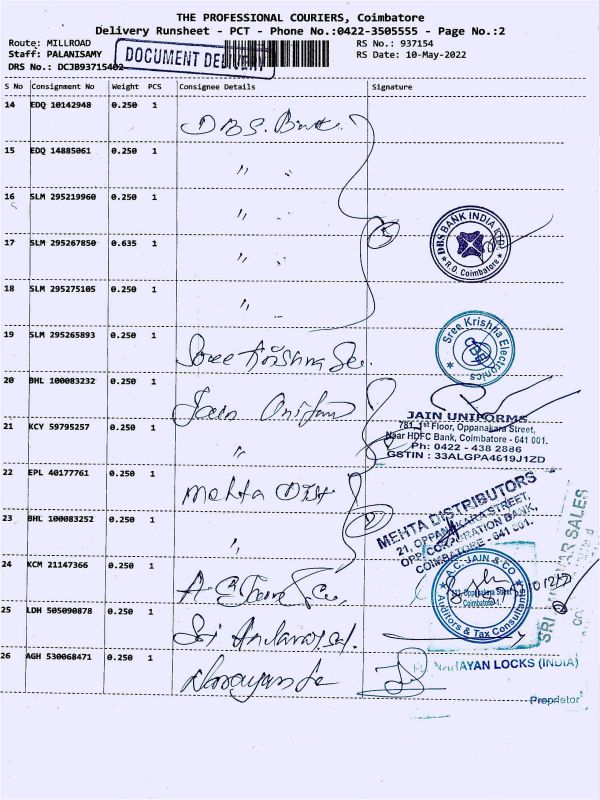 THE PROFESSIONAL COURIERS, Coimbatore
Delivery Runsheet - PCT - Phone No.:0422-3505555 - Page No.:2
Route: MILLROAD
RS No.: 937154
Staff: PALANISAMY
RS Date: 10-May-2022
DRS No.: DCJB93715402
DOCUMENT DELIVERY
S No Consignment No Weight PCS Consignee Details Signature
14 EDQ 10142948 0.250 1 DBS. Bank.
15 EDQ 14885061 0.250 1 〃 〃
16 SLM 295219960 0.250 1 〃 〃
17 SLM 295267850 0.635 1 〃 〃
DBS BANK INDIA LTD
R.O. Coimbatore
18 SLM 295275105 0.250 1 〃 〃
19 SLM 295265893 0.250 1 Sree Krishna
Sree Krishna Electronics
20 BHL 100083232 0.250 1 Jain Uniform
JAIN UNIFORMS
781, 1st Floor, Oppanakara Street,
Near HDFC Bank, Coimbatore - 641 001.
Ph: 0422 - 438 2886
GSTIN : 33ALGPA4619J1ZD
21 KCY 59795257 0.250 1 〃
22 EPL 40177761 0.250 1 Mehta Dist
MEHTA DISTRIBUTORS
21, OPPANAKARA STREET,
OPP. CORPORATION BANK,
COIMBATORE - 641 001.
23 BHL 100083252 0.250 1 〃
24 KCM 21147366 0.250 1
A.C. JAIN & CO
Oppanakara Street
Coimbatore-1.
Auditors & Tax Consultants
25 LDH 505090878 0.250 1 Sri
SALES
26 AGH 530068471 0.250 1 Narayan
NARAYAN LOCKS (INDIA)
Proprietor